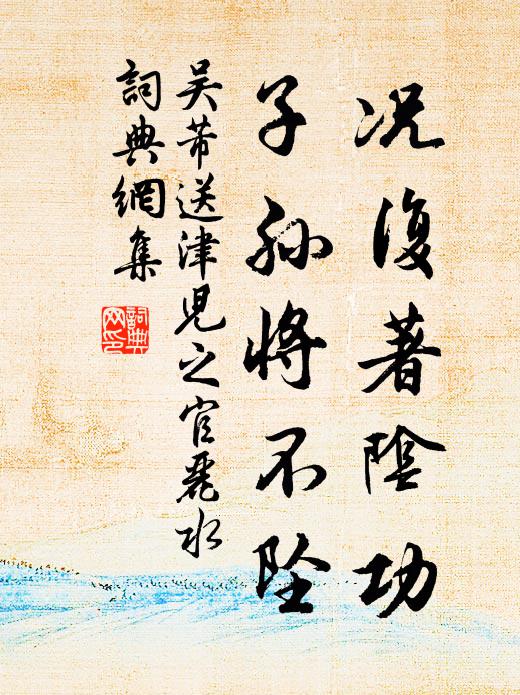 况復著陰功
子孫將不墜
吴芾送津兒之官麗水
詞典網集
詞典網印